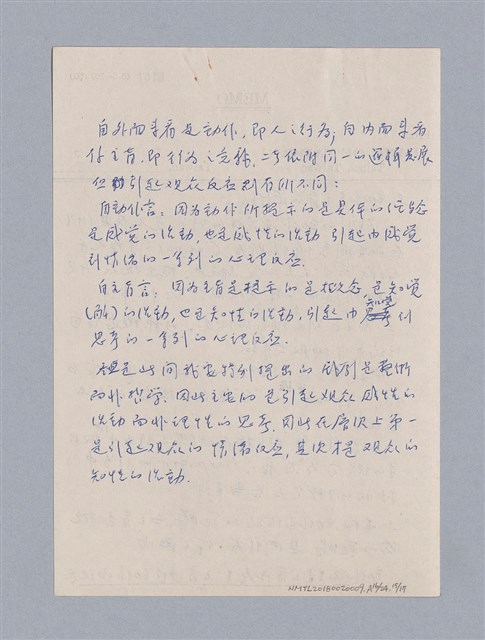 自外而来看是动作，即人之行為；自内而来看
作主旨，即行為之意義，二者依附同一的逻辑发展
但引起观众反应则有所不同：
自动作言：因為动作所提示的是具体的经验
是感觉的活动，也是感性的活动 引起由感觉
到情绪的一系列的心理反应。
自主旨言：因為主旨是提示的是概念 是知觉
的活动，也是知性的活动，引起由知觉到
思考的一系列的心理反应。
但是此间我要特别提出的 戏剧是藝術
而非哲学，因此主要的是引起观众感性的
活动而非理性的思考，因此在层次上第一
是引起观众的情绪反应，其次才是观众的
知性的活动。
NMTL20180020009